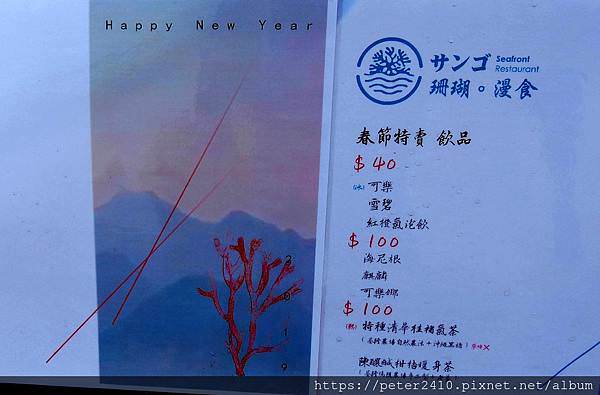 Happy New Year
2019
サンゴ Seafront Restaurant
珊瑚。漫食
春節特賣 飲品
$40
(冰) 可樂
雪碧
紅橙氣泡飲
$100
海尼根
麒麟
可樂娜
$100
(熱) 特種清華桂橘氣茶
陳釀鹹柑桔暖身茶
https://peter2410.pixnet.net/album